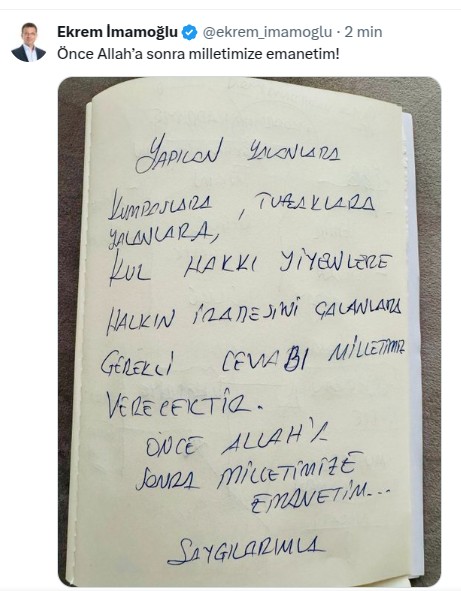 Ekrem İmamoğlu @ekrem_imamoglu · 2 min
Önce Allah'a sonra milletimize emanetim!
YAPILAN YALANLARA
KUMPASLARA , TUZAKLARA
YALANLARA,
KUL HAKKI YİYENLERE
HALKIN İRADESİNİ ÇALANLARA
GEREKLİ CEVABI MİLLETİMİZ
VERECEKTİR.
ÖNCE ALLAH'A
SONRA MİLLETİMİZE
EMANETİM...
SAYGILARIMLA